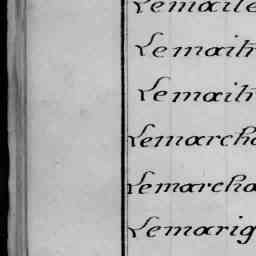 Lemaitr
Lemaitr
Lemarcha
Lemarcha
Lemarig